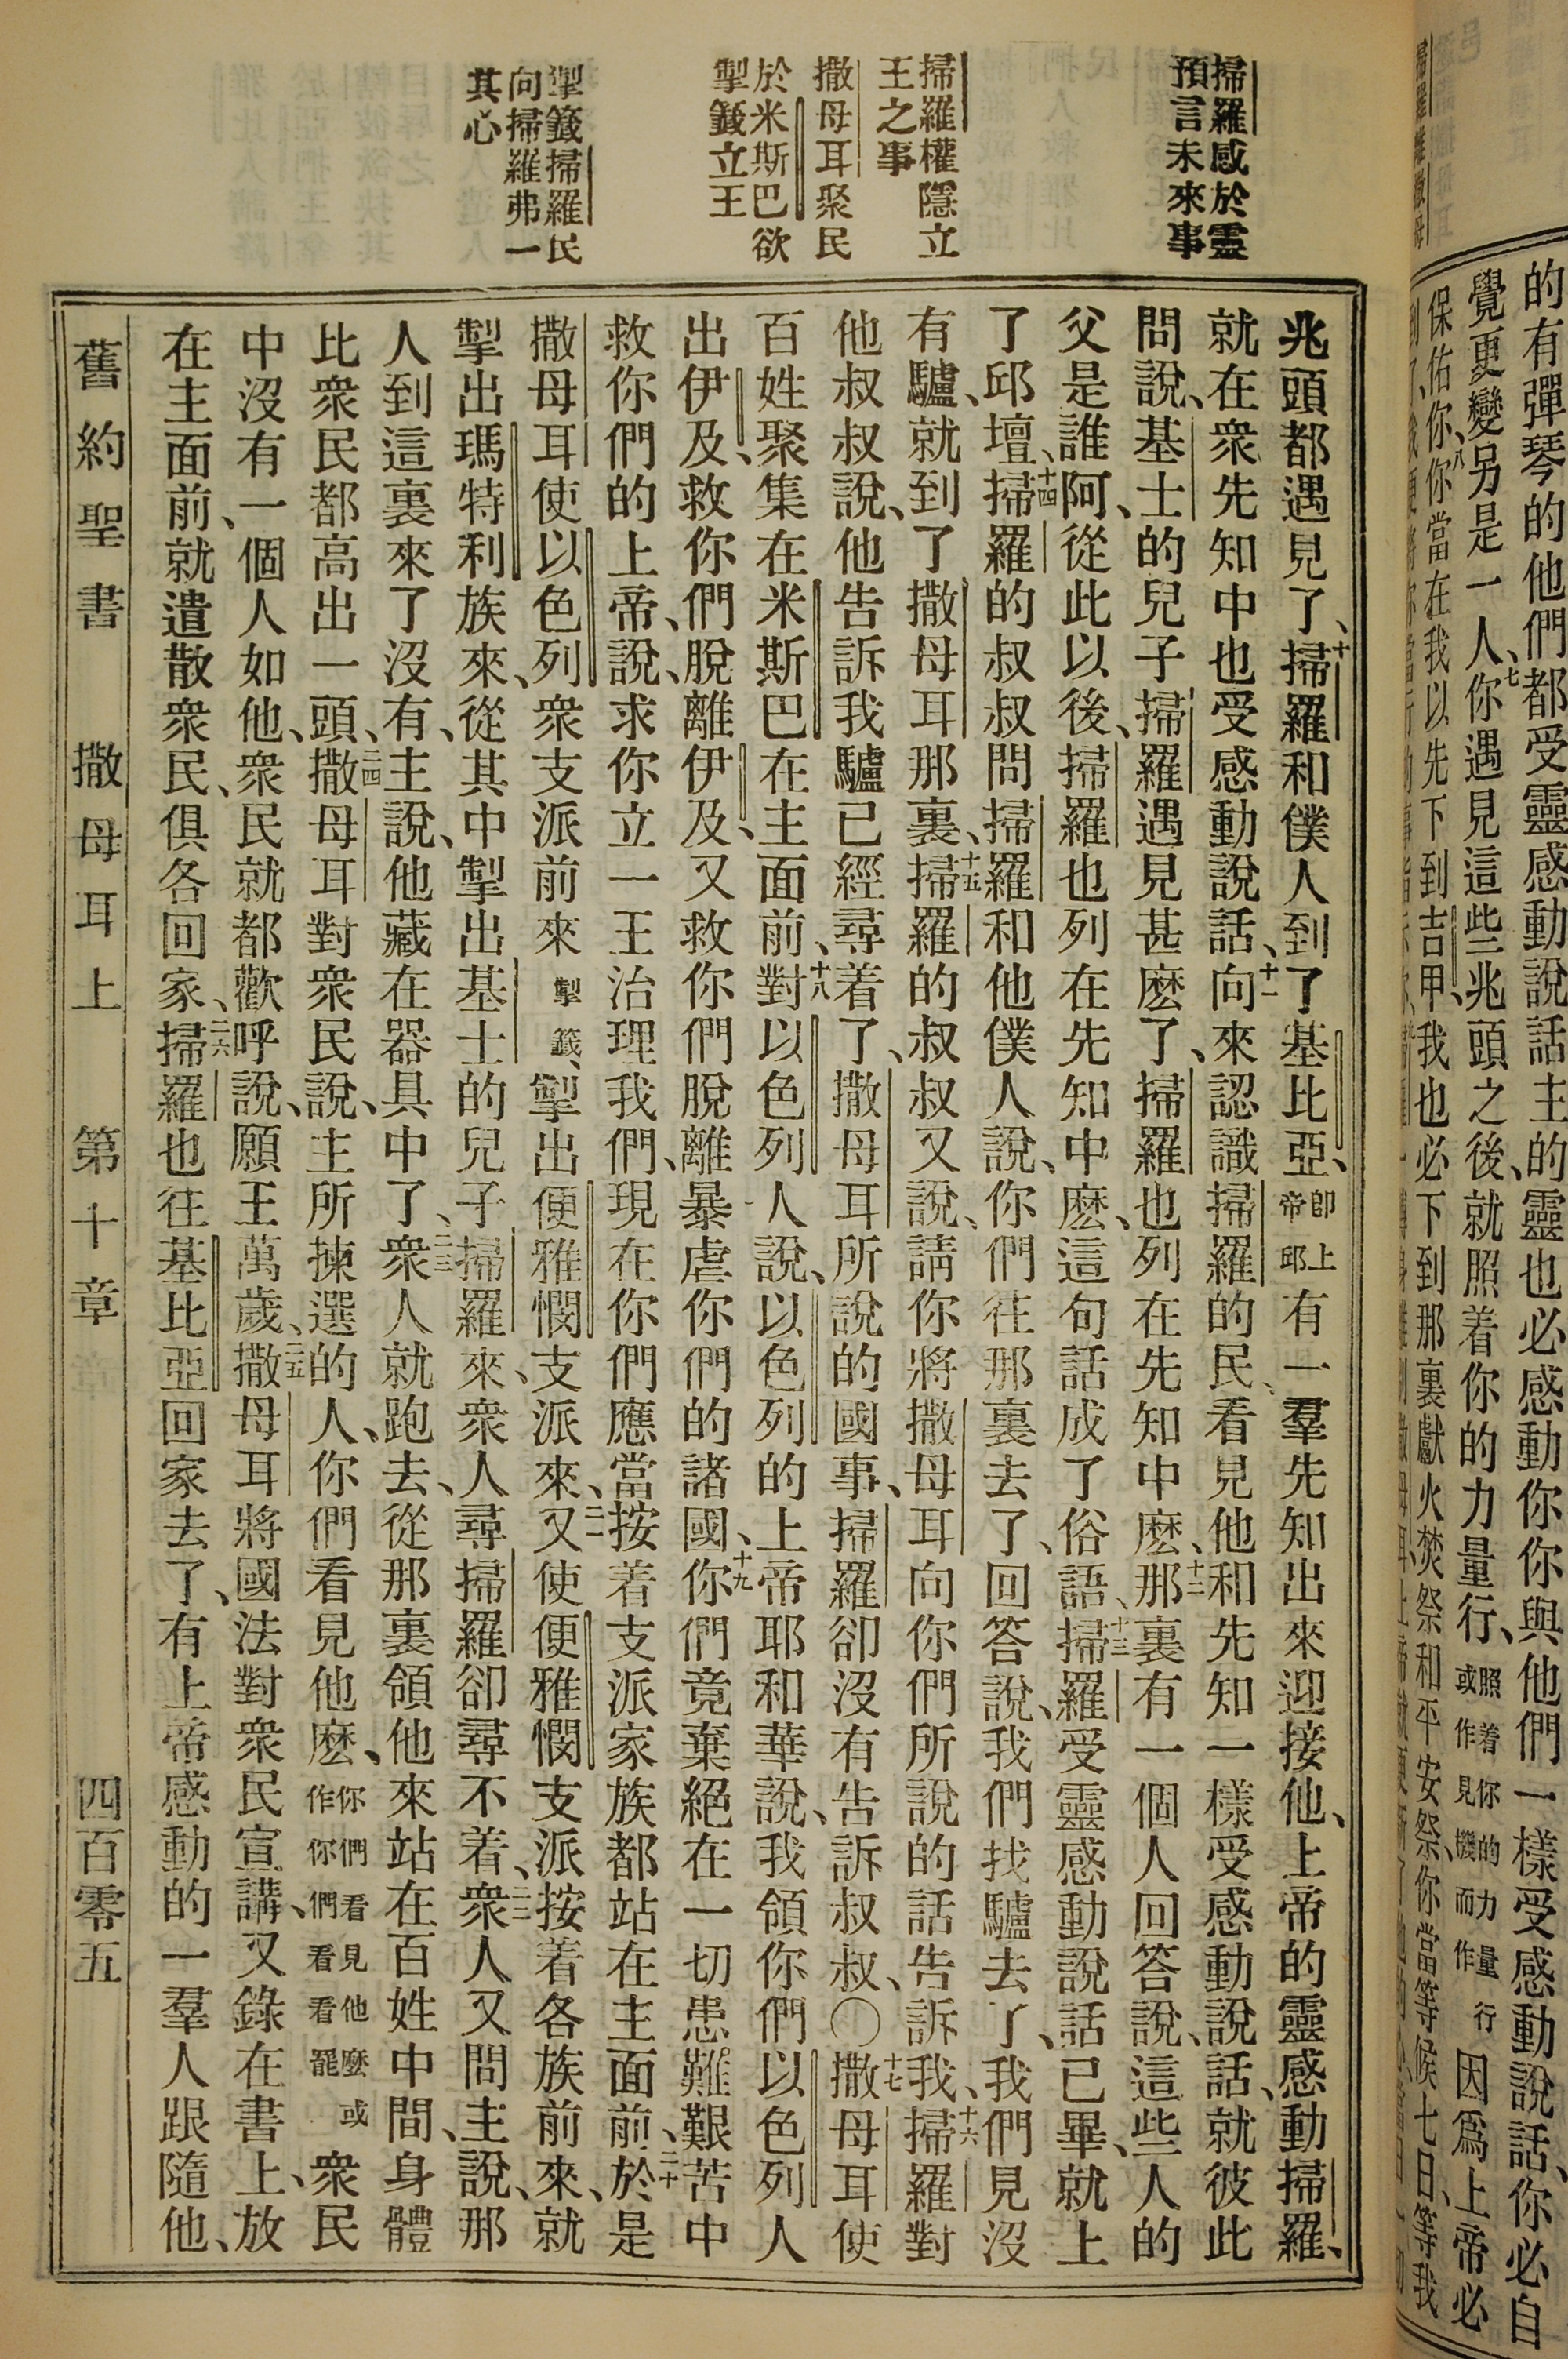 的有彈琴的他們都受靈感動說話主的靈也必感動你你與他們一樣受感動說話、你必自
覺更變另是一人、七你遇見這些兆頭之後、就照着你的力量行、照着你的力量行或作見機而作因爲上帝必
保佑你、八你當在我以先下到吉甲、我也必下到那裏獻火焚祭和平安祭、你當等候七日、等我
掃羅感於靈
預言未來事
掃羅權隱立
王之事
撒母耳聚民
於米斯巴欲
掣籤立王
掣籤掃羅民
向掃羅弗一
其心
兆頭都遇見了、十掃羅和僕人到了基比亞、卽上帝邱有一羣先知出來迎接他、上帝的靈感動掃羅、
就在衆先知中也受感動說話、十一向來認識掃羅的民、看見他和先知一樣受感動說話、就彼此
問說、基士的兒子掃羅遇見甚麽了、掃羅也列在先知中麽、十二那裏有一個人回答說、這些人的
父是誰阿、從此以後、掃羅也列在先知中麽、這句話成了俗語、十三掃羅受靈感動說話已畢、就上
了邱壇、十四掃羅的叔叔問掃羅和他僕人說、你們往那裏去了、回答說、我們找驢去了、我們見沒
有驢、就到了撒母耳那裏、十五掃羅的叔叔又說、請你將撒母耳向你們所說的話告訴我、十六掃羅對
他叔叔說、他告訴我驢已經尋着了、撒母耳所說的國事、掃羅卻沒有告訴叔叔、〇十七撒母耳使
百姓聚集在米斯巴在主面前、十八對以色列人說、以色列的上帝耶和華說、我領你們以色列人
出伊及、救你們脫離伊及、又救你們脫離暴虐你們的諸國、十九你們竟棄絕在一切患難艱苦中
救你們的上帝、說、求你立一王治理我們、現在你們應當按着支派家族都站在主面前、二十於是
撒母耳使以色列衆支派前來掣籤、掣出便雅憫支派來、二一又使便雅憫支派按着各族前來、就
掣出瑪特利族來、從其中掣出基士的兒子掃羅來、衆人尋掃羅卻尋不着、二二衆人又問主說、那
人到這裏來了沒有、主說、他藏在器具中了、二三衆人就跑去、從那裏領他來站在百姓中間、身體
比衆民都高出一頭、二四撒母耳對衆民說、主所揀選的人、你們看見他麽、你們看見他麽或作你們看看罷衆民
中沒有一個人如他、衆民就都歡呼說、願王萬歲、二五撒母耳將國法對衆民宣講、又錄在書上、放
在主面前、就遣散衆民、俱各回家、二六掃羅也往基比亞回家去了、有上帝感動的一羣人跟隨他、
舊約聖書 撒母耳上 第十章 四百零五